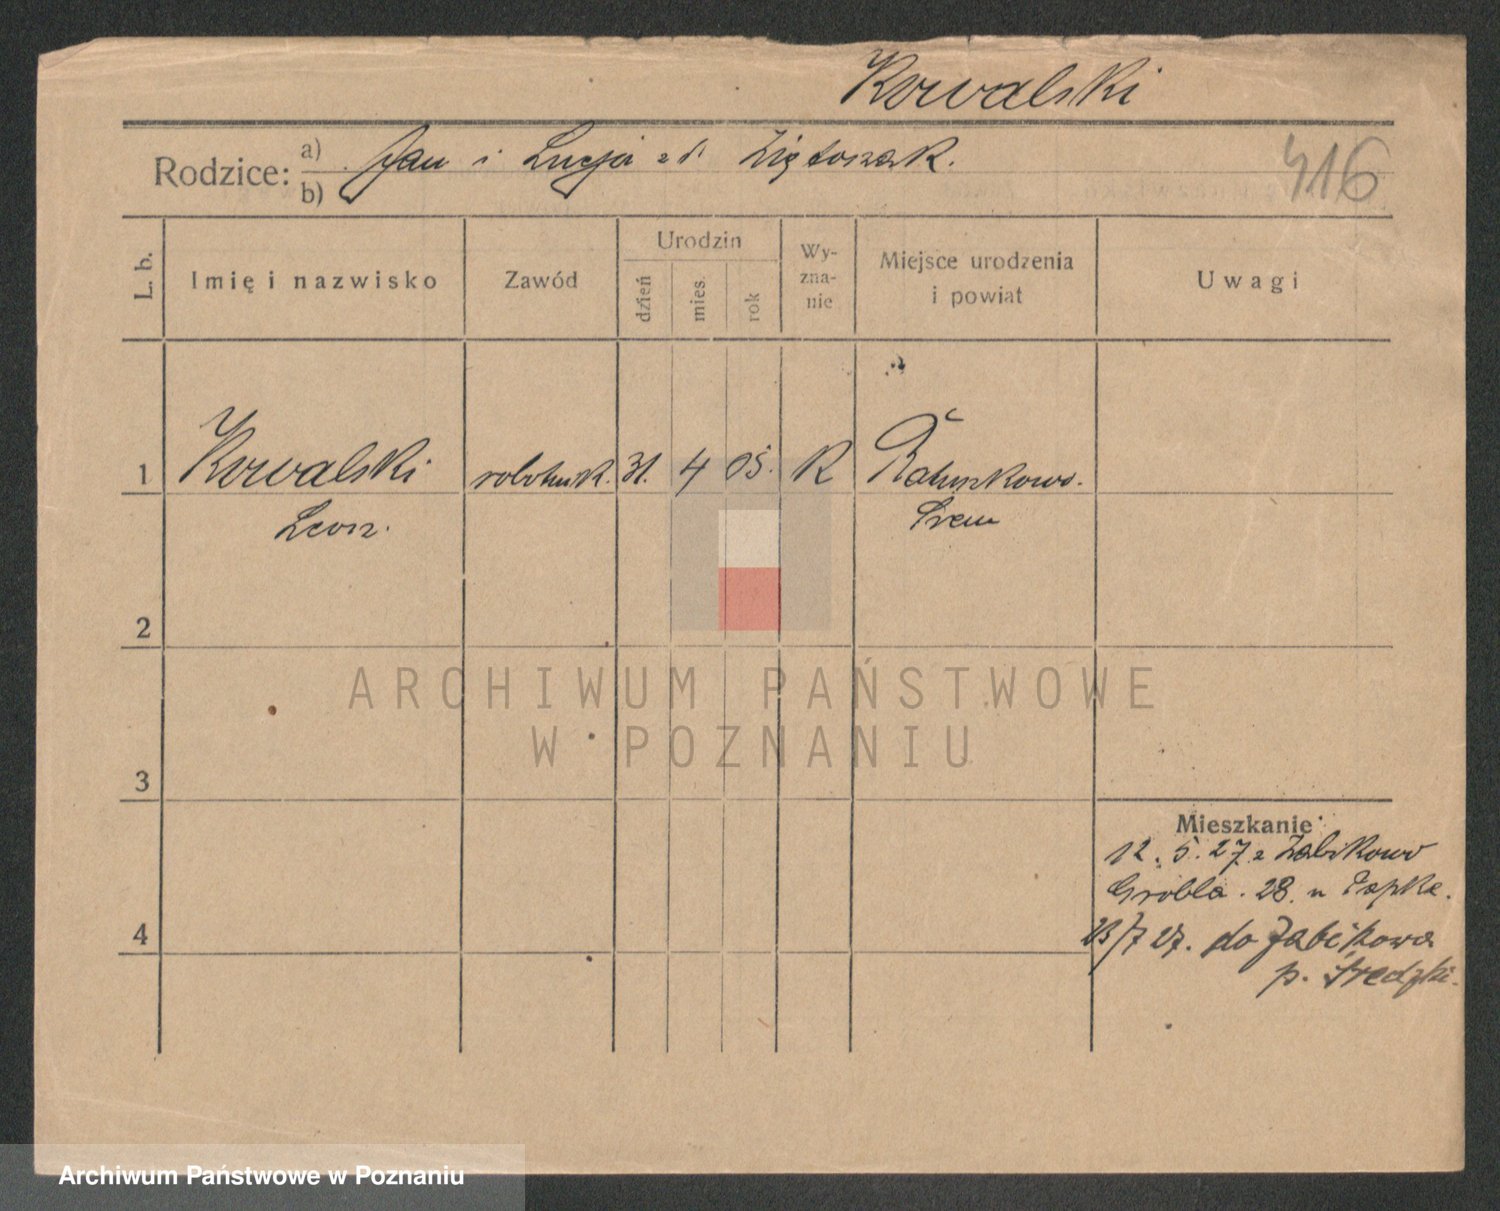 Kowalski
Rodzice: a) Jan i Lucja z d. Ziętoszak.
b)
416
L. b.
Imię i nazwisko
Zawód
Urodzin
dzień
mies.
rok
Wy-
zna-
nie
Miejsce urodzenia
i powiat
Uwagi
1
Kowalski
robotnik.
31.
4
05.
K
Leon.
Śrem
2
ARCHIWUM PAŃSTWOWE
W POZNANIU
3
Mieszkanie
12. 5. 27. z Żabikowo
Grobla. 28. u
4
23/7 27. do Żabikowa
p. Średzki.
Archiwum Państwowe w Poznaniu